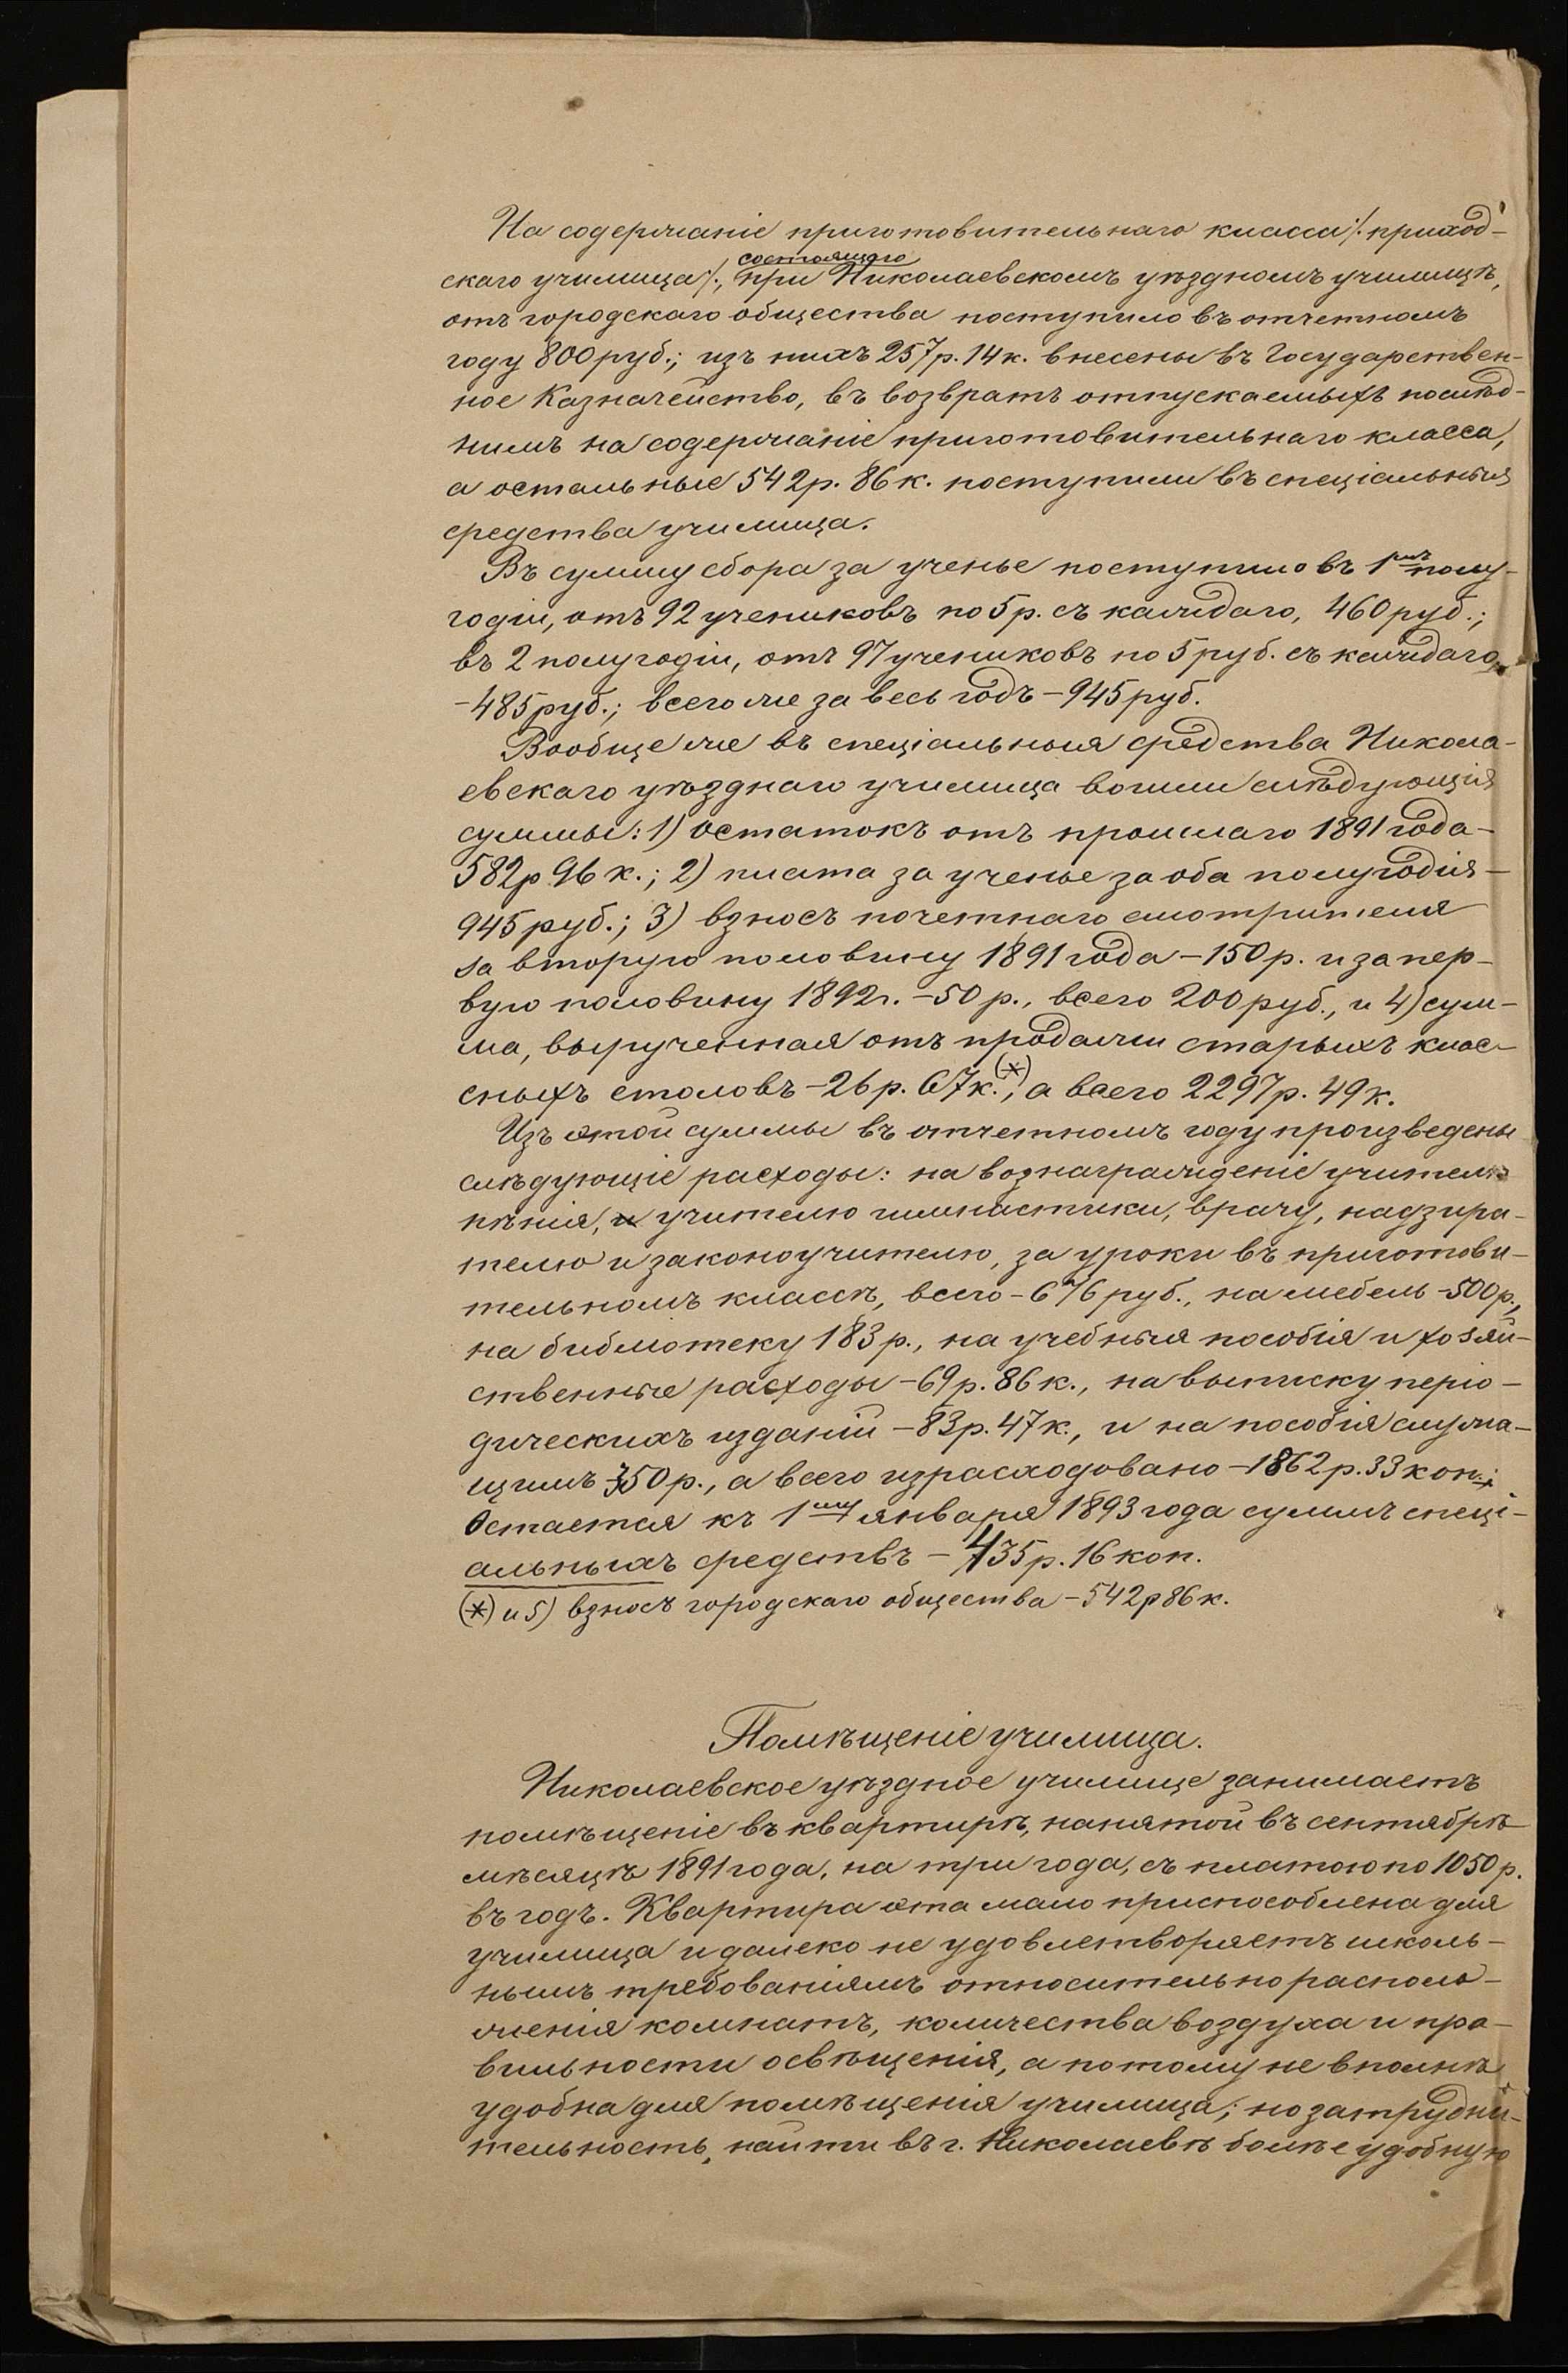 На содержаніе приготовительнаго класса /. приход-
скаго училища /., состоящаго при Николаевскомъ уѣздномъ училищѣ,
отъ городскаго общества поступило въ отчетномъ
году 800 руб.; изъ нихъ 257 р. 14 к. внесены въ Государствен-
ное Казначейство, въ возвратъ отпускаемыхъ послѣд-
нимъ на содержаніе приготовительнаго класса,
а остальные 542 р. 86 к. поступили въ спеціальныя
средства училища.
Въ сумму сбора за ученье поступило въ 1мъ полу-
годіи, отъ 92 учениковъ по 5 р. съ каждаго, 460 руб.;
въ 2 полугодіи, отъ 97 учениковъ по 5 руб. съ каждаго,
- 485 руб.; всего же за весь годъ - 945 руб.
Вообще же въ спеціальныя средства Никола-
евскаго уѣзднаго училища вошли слѣдующія
суммы: 1) остатокъ отъ прошлаго 1891 года -
582 р 96 к.; 2) плата за ученье за оба полугодія -
945 руб.; 3) взносъ почетнаго смотрителя
за вторую половину 1891 года - 150 р. и за пер-
вую половину 1892 г. - 50 р., всего 200 руб., и 4) сум-
ма, вырученная отъ продажи старыхъ клас-
сныхъ столовъ - 26 р. 67 к. (*), а всего 2297 р. 49 к.
Изъ этой суммы въ отчетномъ году произведены
слѣдующіе расходы: на вознагражденіе учителю
пѣнія, учителю гимнастики, врачу, надзира-
телю и законоучителю, за уроки въ приготови-
тельномъ классѣ, всего - 676 руб., на мебель - 500 р.,
на библіотеку 183 р., на учебныя пособія и хозяй-
ственные расходы - 69 р. 86 к., на выписку періо-
дическихъ изданій - 83 р. 47 к., и на пособія служа-
щимъ 350 р., а всего израсходовано - 1862 р. 33 коп.;
Остается къ 1му января 1893 года суммъ спеці-
альныхъ средствъ - 435 р. 16 коп.
(*) и 5) взносъ городскаго общества - 542 р 86 к.
Помѣщеніе училища.
Николаевское уѣздное училище занимаетъ
помѣщеніе въ квартирѣ, нанятой въ сентябрѣ
мѣсяцѣ 1891 года, на три года, съ платою по 1050 р.
въ годъ. Квартира эта мало приспособлена для
училища и далеко не удовлетворяетъ школь-
нымъ требованіямъ относительно располо-
женія комнатъ, количества воздуха и пра-
вильности освѣщенія, а потому не вполнѣ
удобна для помѣщенія училища; но затрудни-
тельность, найти въ г. Николаевѣ болѣе удобную